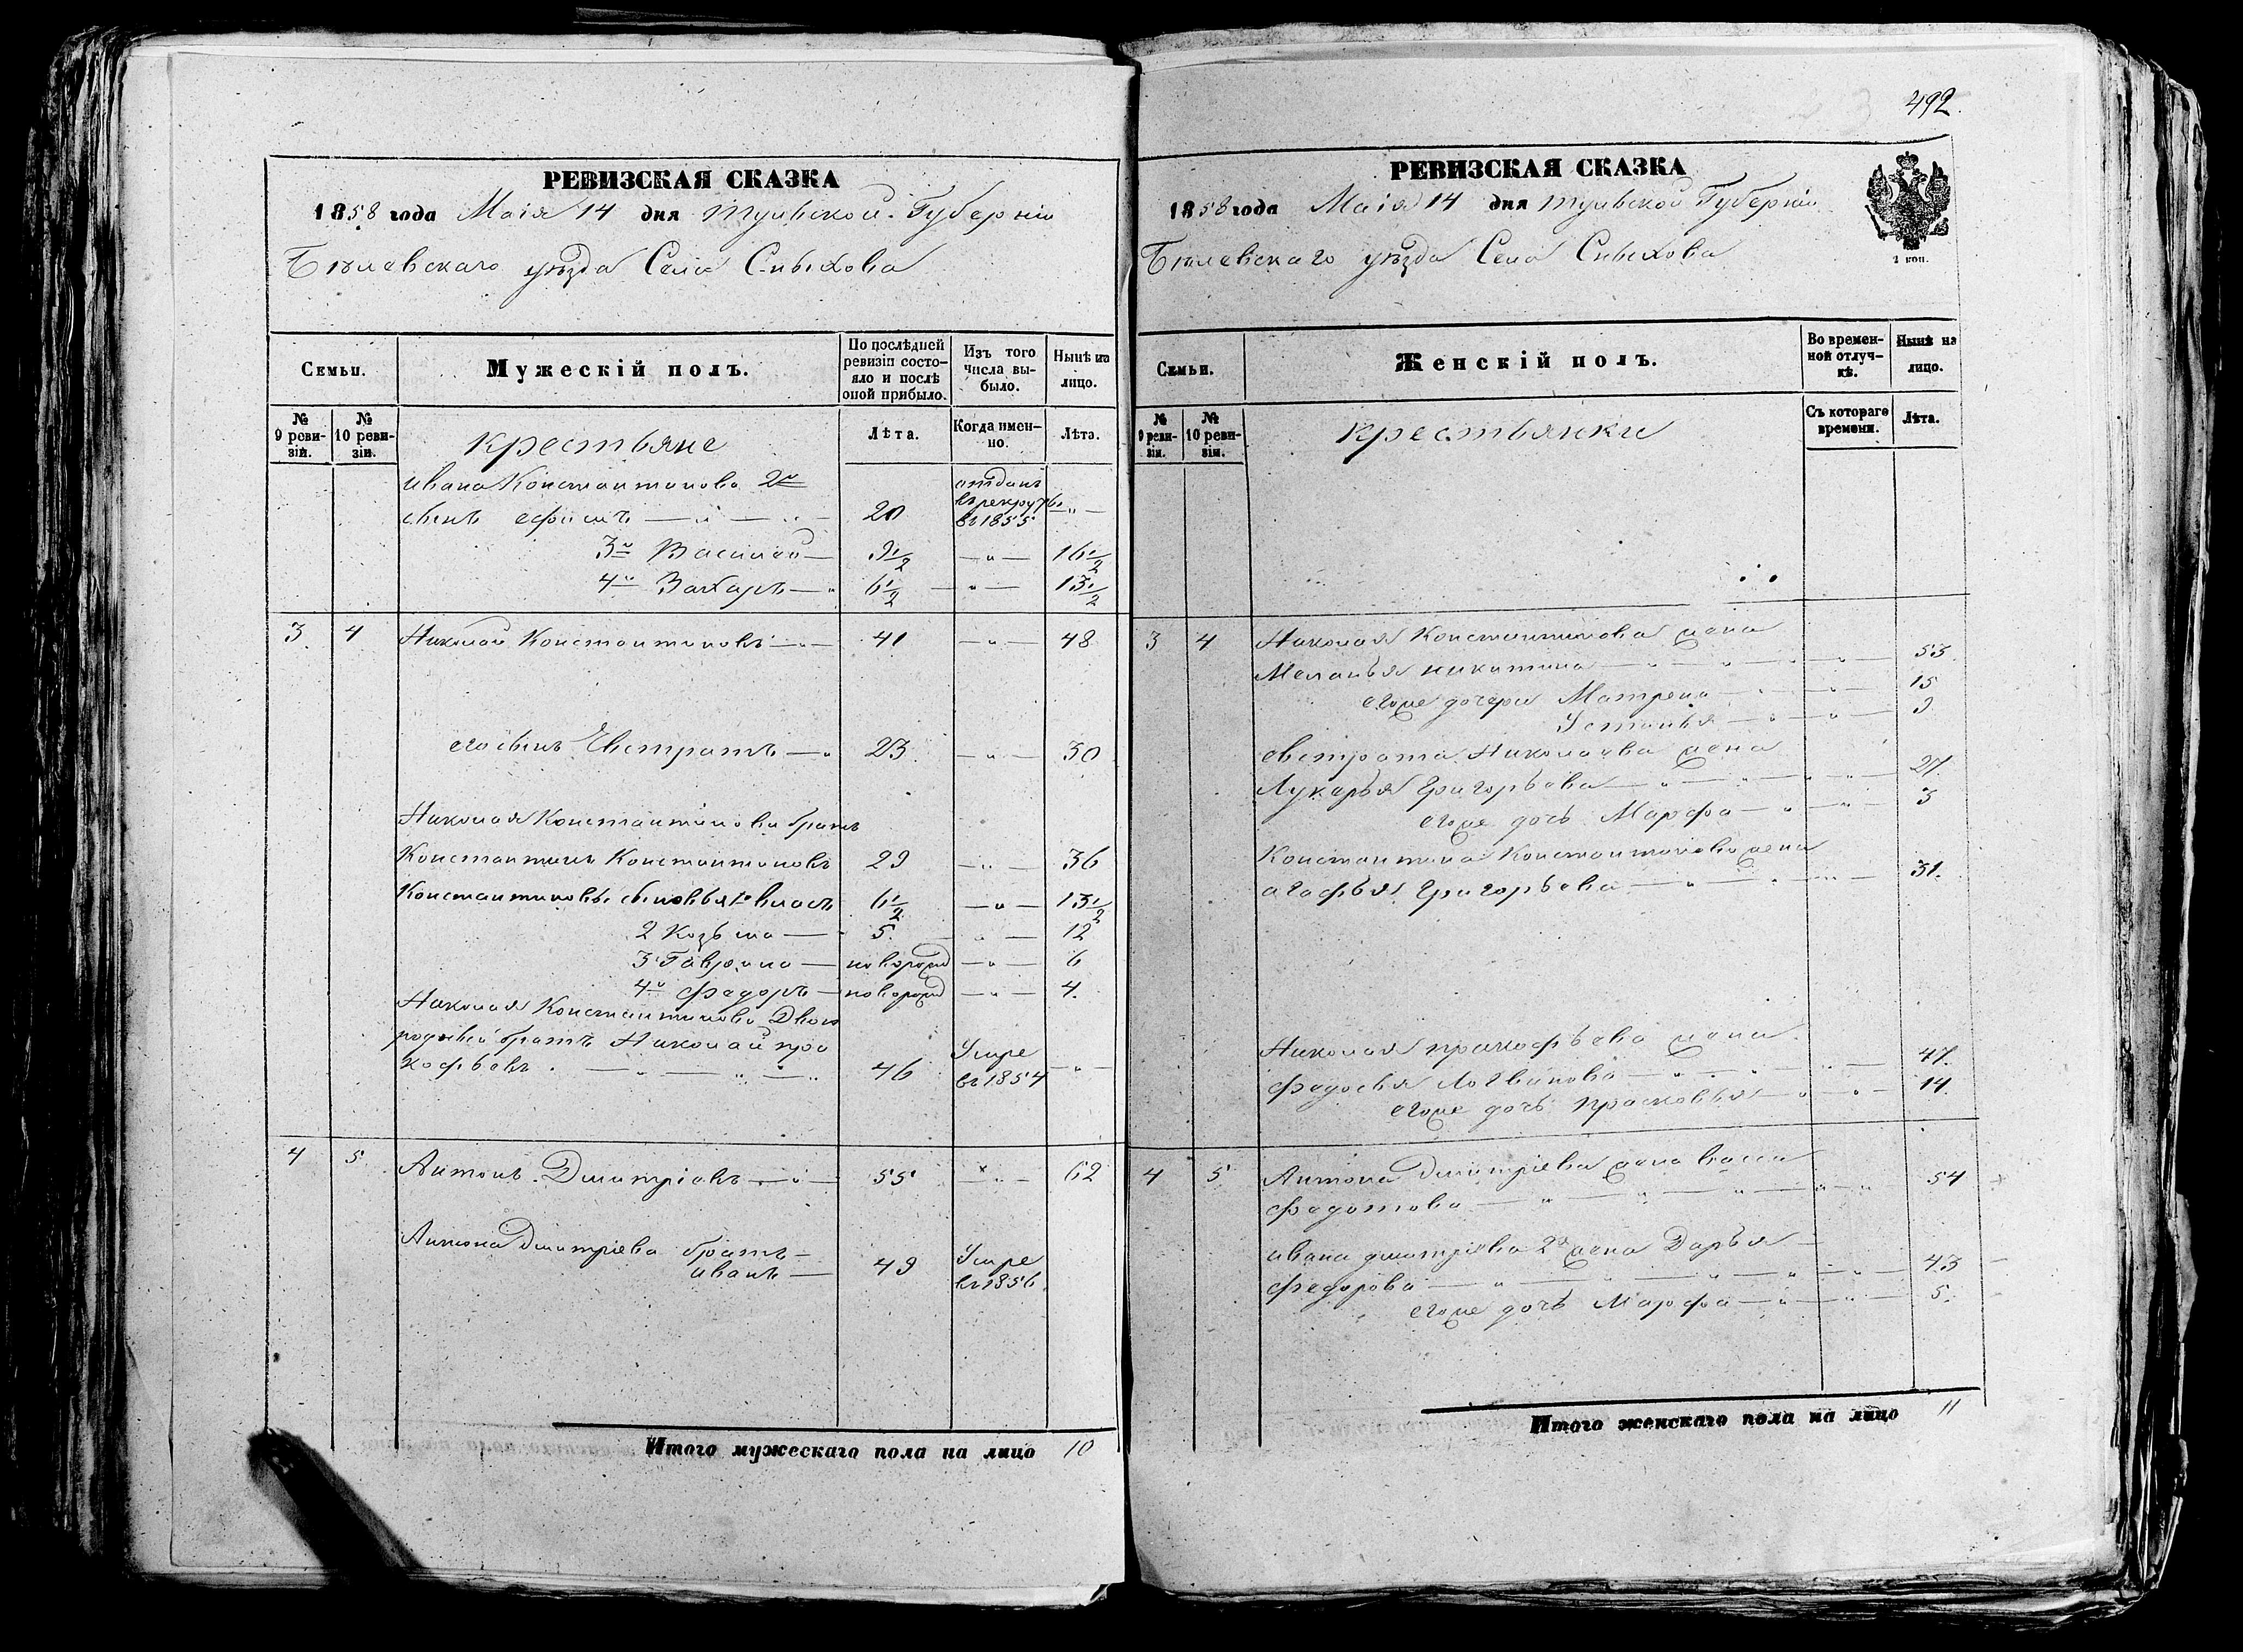 492.
РЕВИЗСКАЯ СКАЗКА
1858 года Маія 14 дня Тульской Губерніи
Бѣлевскаго уѣзда Села Сныхова
Семьи.
Мужескій полъ.
По послѣдней ревизіи состояло и послѣ оной прибыло.
Изъ того числа выбыло.
Нынѣ на лицо.
№ 9 ревизіи.
№ 10 ревизіи.
Крестьяне
Лѣта.
Когда именно.
Лѣта.
Ивана Константинова 2й
сынъ ефимъ 20 отданъ въ рекруты въ 1855
3й Василий 9 1/2 16 1/2
4й Захаръ 6 1/2 13 1/2
3 4 Николай Константиновъ 41 48
его сынъ Евстратъ 23 30
Николая Константинова братъ
Константинъ Константиновъ 29 36
Константиновы сыновья 1й власъ 6 1/2 13 1/2
2 Козьма 5 12
3 Гаврила новорожд 6
4й Федоръ новорожд 4
Николая Константинова Двою
родный братъ Николай про
кофьевъ 46 Умре въ 1854
4 5 Антонъ Дмитріевъ 55 62
Антона Дмитріева братъ
иванъ 49 Умре въ 1856
Итого мужескаго пола на лицо 10
РЕВИЗСКАЯ СКАЗКА
1858 года Маія 14 дня Тульской Губерніи
Бѣлевскаго уѣзда Села Сныхова
2 коп.
Семьи.
Женскій полъ.
Во временной отлучкѣ.
Нынѣ на лицо.
№ 9 ревизіи.
№ 10 ревизіи.
Крестьянки
Съ котораго времени.
Лѣта.
3 4 Николая Константинова жена
Меланья никитина 53
егоже дочери Матрена 15
Устинья 9
евстрата Николаева жена
Лукерья Григорьева 27
егоже дочь Марфа 3
Константина Константинова жена
агафья Григорьева 31.
Николая прокофьева жена
федосья Логвинова 47
егоже дочь прасковья 14
4 5 Антона Дмитріева жена васса
федотова 54
ивана дмитріева 2я жена Дарья
федорова 43
егоже дочь Марфа 5.
Итого женскаго пола на лицо 11